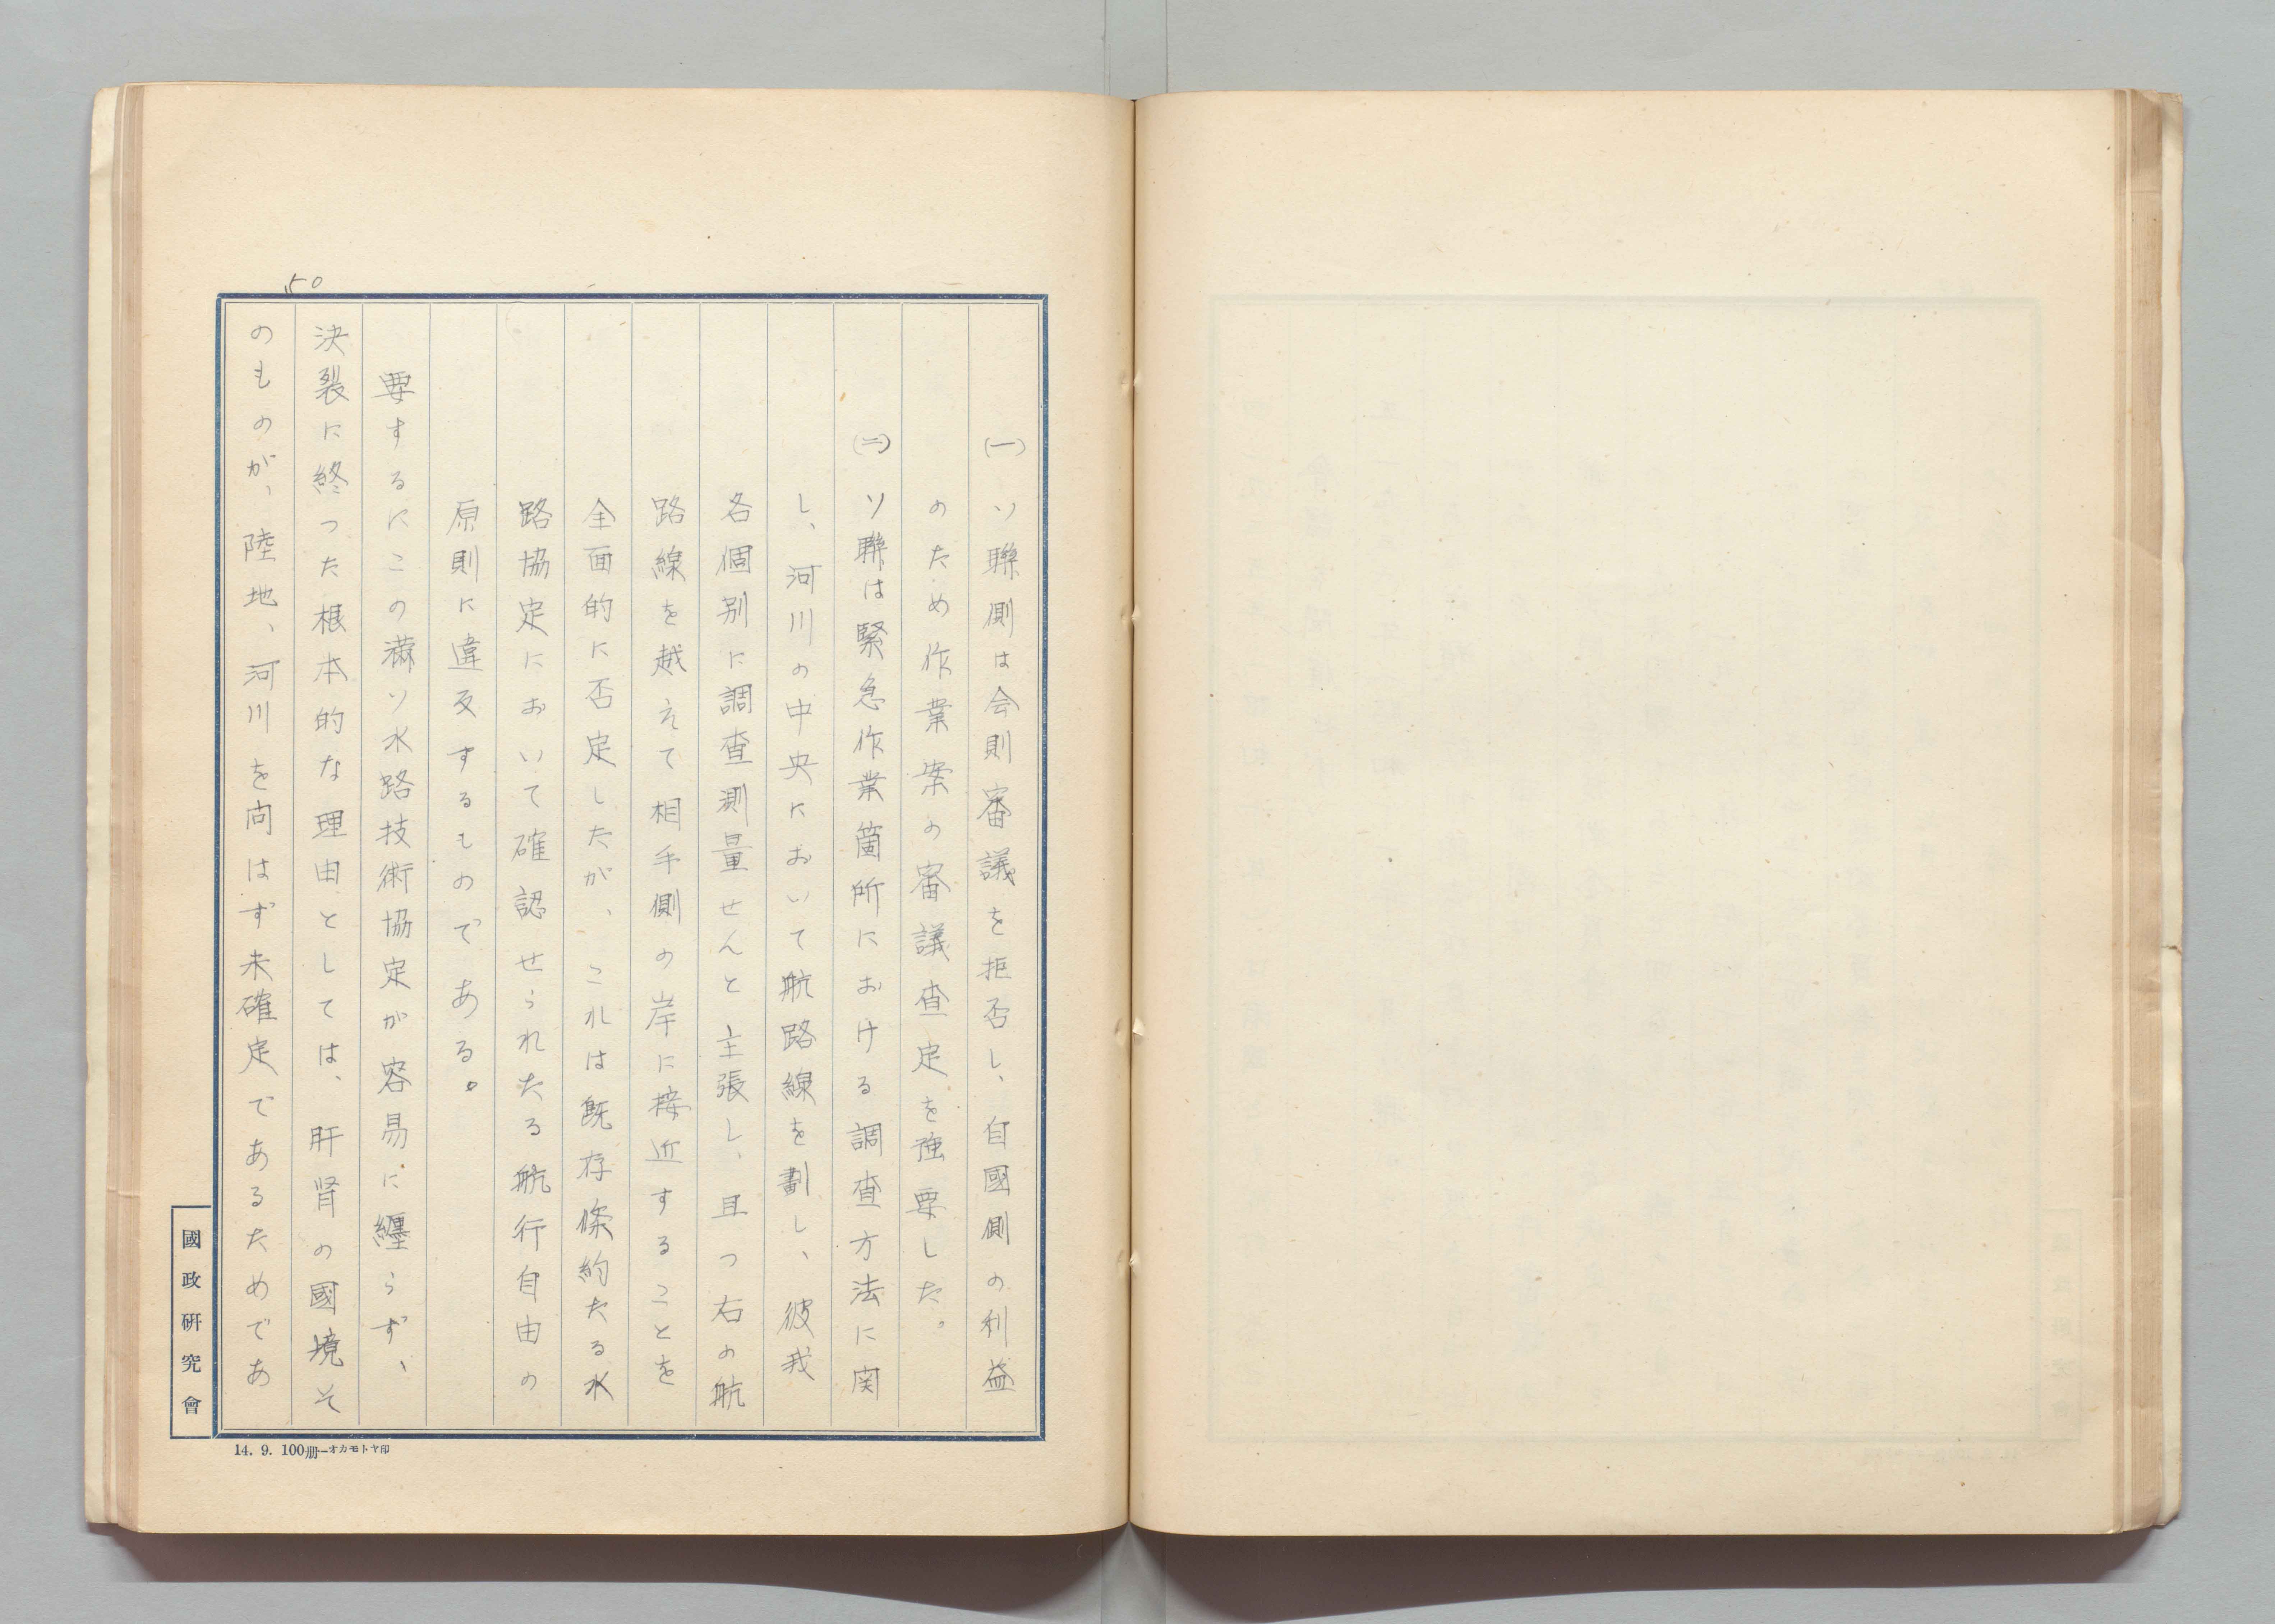 50
(一) ソ聯側は会則審議を拒否し、自國側の利益
のため作業案の審議査定を強要した。
(二) ソ聯は緊急作業箇所における調査方法に関
し、河川の中央において航路線を劃し、彼我
各個別に調査測量せんと主張し、且つ右の航
路線を越えて相手側の岸に接近することを
全面的に否定したが、これは既存條約たる水
路協定において確認せられたる航行自由の
原則に違反するものである。
要するにこの満ソ水路技術協定が容易に纏らず、
決裂に終つた根本的な理由としては、肝腎の國境そ
のものが、陸地、河川を問はず未確定であるためであ
國政研究會
14. 9. 100册—オカモトヤ印